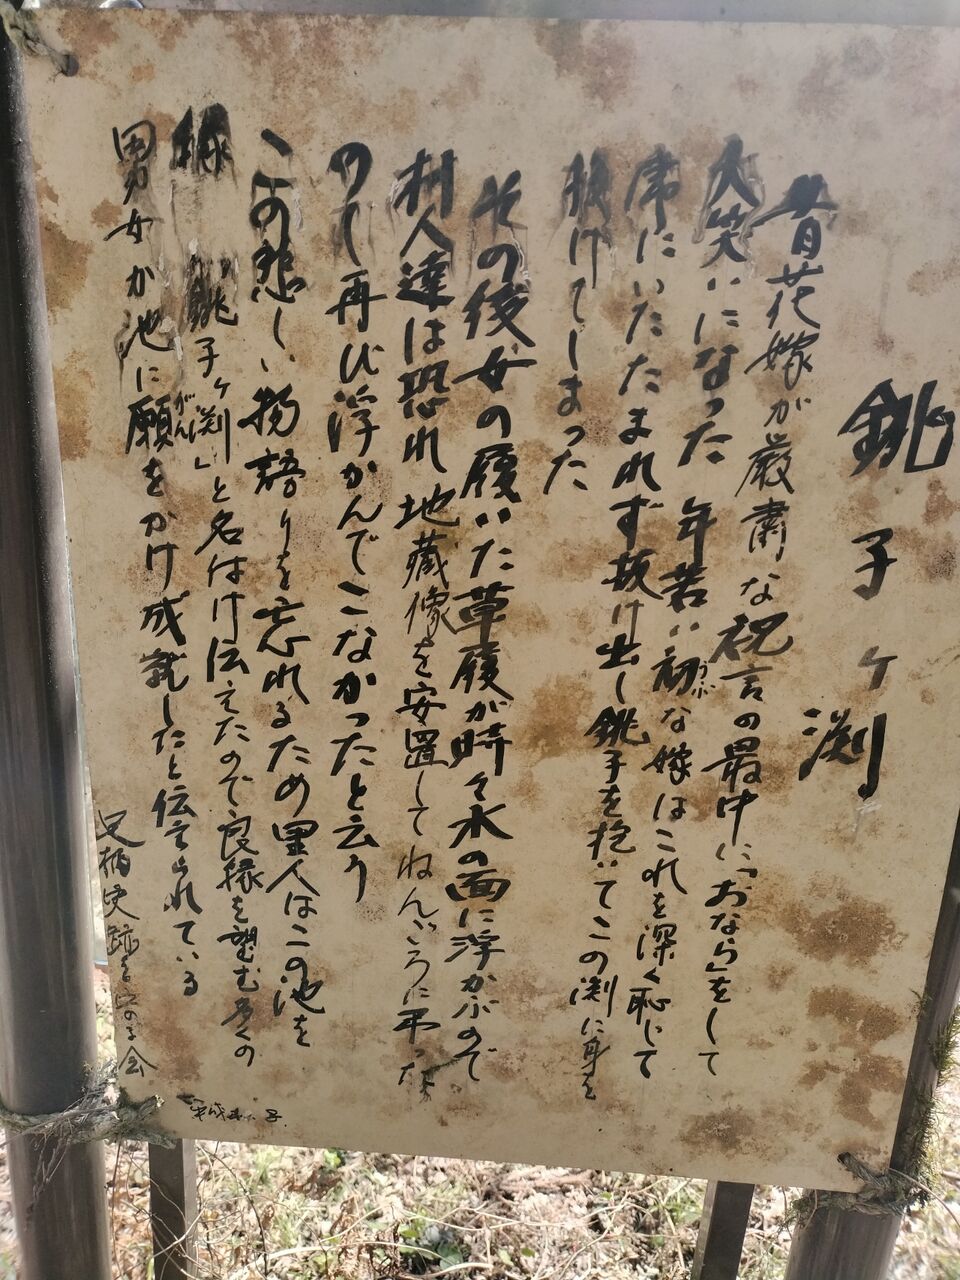 銚子ヶ渕
昔花嫁が厳粛な祝言の最中に「おなら」をして
大笑いになった 年若い初な嫁はこれを深く恥じて
うぶ
席にいたたまれず抜け出し銚子を抱いてこの渕に身を
投げてしまった
その後女の履いた草履が時々水の面に浮かぶので
村人達は恐れ地蔵像を安置してねんごろに弔った
再び浮かんでこなかったと云う
この悲しい物語りを忘れるため里人はこの池を
銚子ヶ渕」と名はけ伝えたので良縁を望む多くの
男女か池に願をかけ成就したと伝えられている
がん
足柄史跡
会